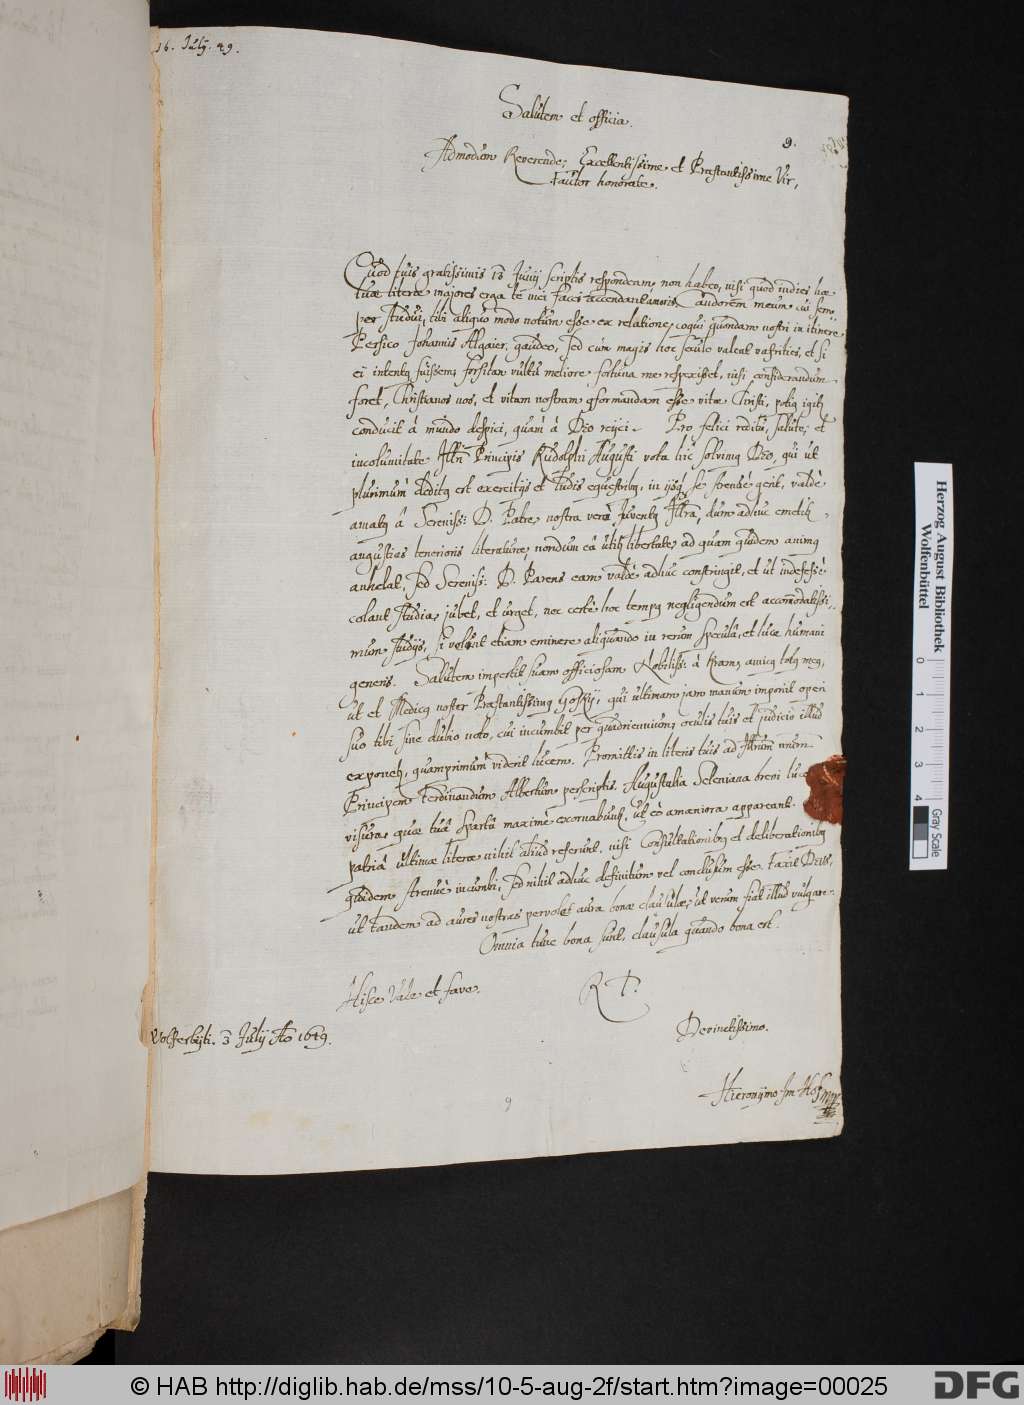 16. July. 49.
Salutem et officia.
9.
Admodum Reverende, Excellentissime et Præstantissime Vir,
Fautor honorate.
Quod tuis gratissimis 13 Junij scriptis respondeam, non habeo, nisi quod indies hæ
tuæ literæ majores erga te mei faces accendant amoris, candorem meum cui sem-
per studui, tibi aliquo modo notum esse ex relatione coqui quondam nostri in itinere
Persico Johannis Algaier, gaudeo, sed cùm magis hoc sæculo valeat vafrities, et si
ei intentus fuissem, forsitan vultu meliore fortuna me respexisset, nisi considerandum
foret, Christianos nos, et vitam nostram conformandam esse vitæ Christi, potius igitur
conducit à mundo despici, quàm à Deo reijci. Pro felici reditu, salute, et
incolumitate Illmi Principis Rudolphi Augusti vota hîc solvimus Deo, qui ut
plurimùm deditus est exercitijs et ludis equestribus, in ijsque se strenuè gerit, valdè
amatus à Sereniss: D. Patre, nostra verò Juventus Illma, dum adhuc
angustias tenerioris literaturæ, nondum eâ utitur libertate, ad quam quidem animus
anhelat, sed Sereniss: D. Parens eam valdè adhuc constringit, et ut indefessè
colant studia, jubet, et urget, nec certè hoc tempus negligendum est accommodatissi-
mum studijs, si volunt etiam eminere aliquando in rerum speculâ, et luce humani
generis. Salutem impertit suam officiosam Nobiliss: à Kram, amicus totus meus,
ut et Medicus noster Præstantissimus Gosky, qui ultimam jam manum imponit operi
suo tibi sine dubio noto, cui incumbit per quadriennium, oculis tuis et judicio illud
exponetur, quamprimum viderit lucem. Promittis in literis tuis ad Illmum nrum
Principem Ferdinandum Albertum perscriptis, Augustalia Seleniana brevi luce
visura, quæ tuâ Spartâ maximè exornabuntur, ut eò amæniora appareant.
patriâ ultimæ literæ nihil aliud referunt, nisi Consultationibus et deliberationibus
quidem strenuè incumbi, sed nihil adhuc definitum vel conclusum esse. Faxit Deus,
ut tandem ad aures nostras pervolet aura bonæ clausulæ, ut verum fiat illud vulgare.
Omnia tunc bona sunt, clausula quando bona est.
Hisce Vale et fave.
R T.
Wolferbyti. 3 Julij Ao 1649.
Devinctissimo.
Hieronymo Im Hof
9
Herzog August Bibliothek
Wolfenbüttel
0 1 2 3 4
Gray Scale
© HAB http://diglib.hab.de/mss/10-5-aug-2f/start.htm?image=00025
DFG